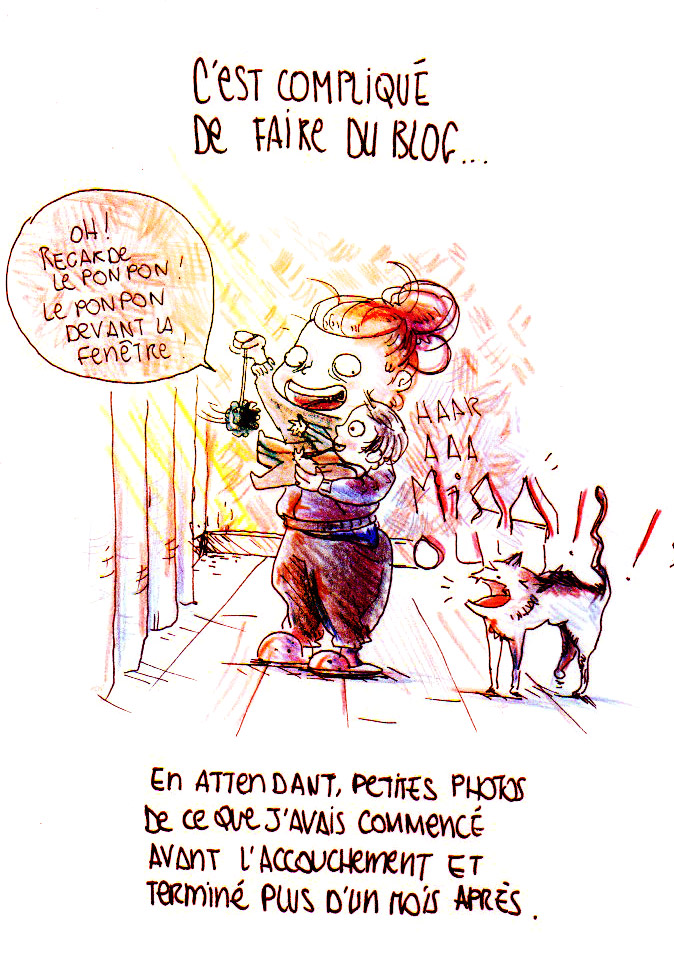 C'EST COMPLIQUÉ
DE FAIRE DU BLOG...
OH!
REGARDE
LE PONPON!
LE PONPON
DEVANT LA
FENÊTRE!
HAAR
AAA
MiAA
OU!!!
En ATTENDANT, PETITES PHOTOS
DE CE QUE J'AVAIS COMMENCÉ
AVANT L'ACCOUCHEMENT ET
TERMINÉ PLUS D'UN MOIS APRÈS.